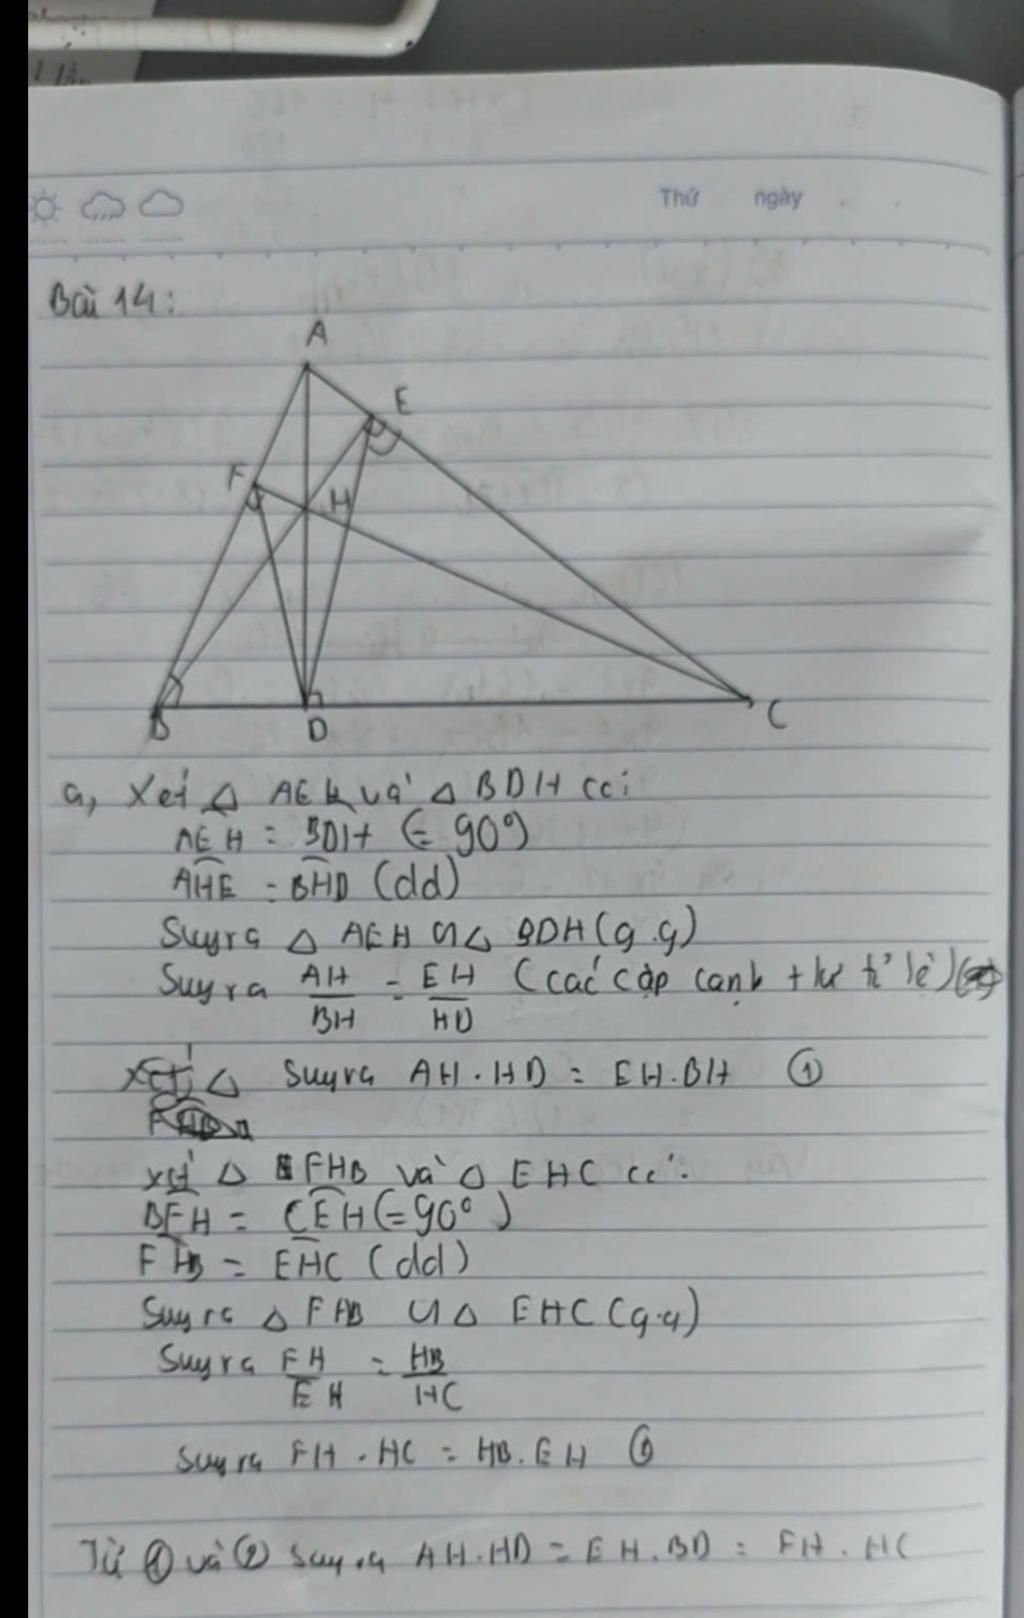 Thứ ngày
Bài 14:
A
E
F
H
B D C
a, Xét △ AEH và △ BDH có:
AEH = BDH (= 90°)
AHE = BHD (dd)
Suy ra △ AEH ᔕ △ BDH (g.g)
Suy ra AH/BH = EH/HD (các cặp cạnh t/ư tỉ lệ)
Xét △ Suy ra AH.HD = EH.BH ①
xét △ FHB và △ EHC có:
BFH = CEH (= 90°)
FHB = EHC (dd)
Suy ra △ FHB ᔕ △ EHC (g.g)
Suy ra FH/EH = HB/HC
Suy ra FH.HC = HB.EH
Từ ① và ② Suy ra AH.HD = EH.BD = FH.HC